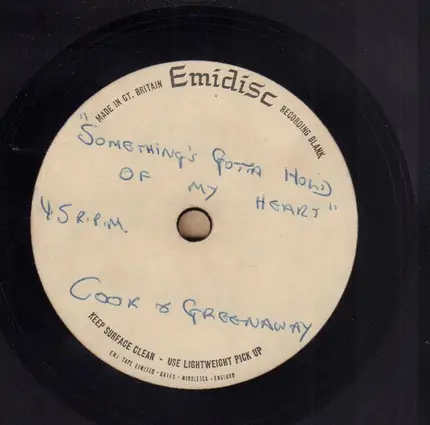 MADE IN GT. BRITAIN Emidisc RECORDING BLANK
"SOMETHING'S GOTTA HOLD
OF MY HEART"
45 R.P.M.
COOK & GREENAWAY
KEEP SURFACE CLEAN - USE LIGHTWEIGHT PICK UP
E.M.I. TAPE LIMITED - HAYES - MIDDLESEX - ENGLAND